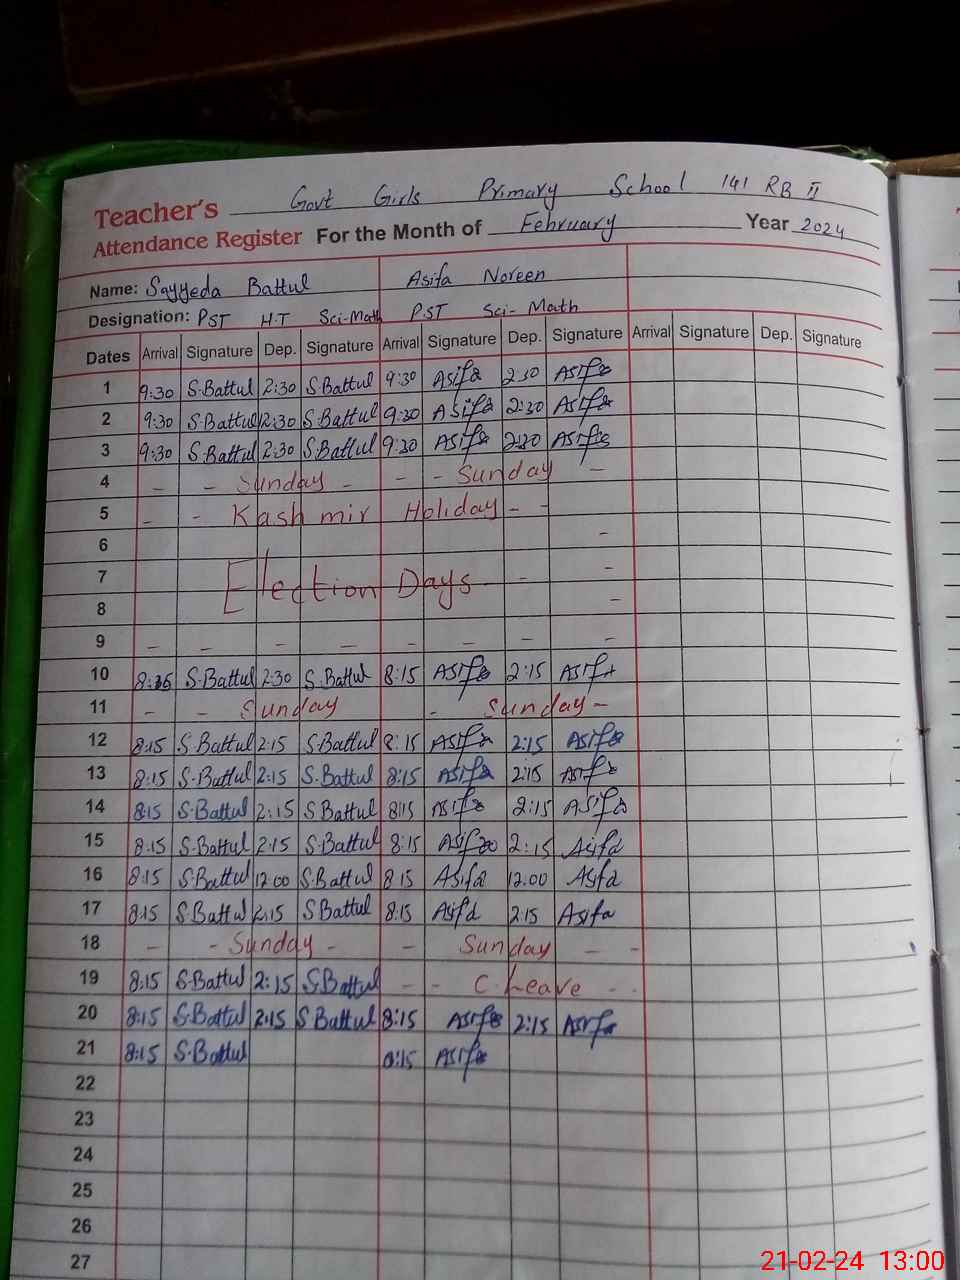 Teacher's Govt Girls Primary School 141 RB II
Attendance Register For the Month of February Year 2024
Name: Sayyeda Battul Asifa Noreen
Designation: PST H.T Sci-Math PST Sci-Math
Dates Arrival Signature Dep. Signature Arrival Signature Dep. Signature Arrival Signature Dep. Signature
1 9:30 S.Battul 2:30 S.Battul 9:30 Asifa 2:30 Asifa
2 9:30 S.Battul 2:30 S.Battul 9:30 Asifa 2:30 Asifa
3 9:30 S.Battul 2:30 S.Battul 9:30 Asifa 2:30 Asifa
4 - - Sunday - - - Sunday -
5 - - Kashmir Holiday - -
6 -
7 Election Days - -
8 -
9 - - - - - - - -
10 S.Battul 2:30 S.Battul 8:15 Asifa 2:15 Asifa
11 - - Sunday - Sunday -
12 8:15 S.Battul 2:15 S.Battul 8:15 Asifa 2:15 Asifa
13 8:15 S.Battul 2:15 S.Battul 8:15 Asifa 2:15 Asifa
14 8:15 S.Battul 2:15 S.Battul 8:15 Asifa 2:15 Asifa
15 8:15 S.Battul 2:15 S.Battul 8:15 Asifa 2:15 Asifa
16 8:15 S.Battul 12.00 S.Battul 8:15 Asifa 12.00 Asifa
17 8:15 S.Battul 2:15 S.Battul 8:15 Asifa 2:15 Asifa
18 - - Sunday - - Sunday - -
19 8:15 S.Battul 2:15 S.Battul - - C.Leave - -
20 8:15 S.Battul 2:15 S.Battul 8:15 Asifa 2:15 Asifa
21 8:15 S.Battul 8:15 Asifa
22
23
24
25
26
27
21-02-24 13:00